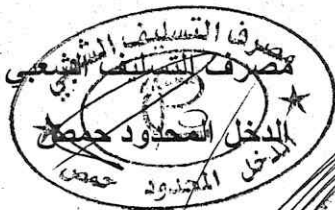 مصرف التسليف الشعبي
مصرف التسليف الشعبي
الدخل المحدود حمص
الدخل المحدود حمص